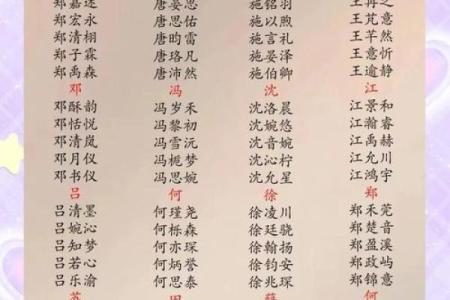 郑宏永 唐思佑 施铭羽 王芃意
郑清栩 唐昀雷 施以煦 王芊然
郑子霖 唐珞凡 施言礼 王意忻
郑禹森 唐沛然 施晏泽 王逾静
邓 冯 沈 江
邓酥韵 冯岁禾 沈洛晨 江景和
邓恬悦 冯黎初 沈婉悠 江瀚睿
邓清岚 冯雪沅 沈音婉 江禹赫
邓月仪 冯栀梦 沈沁柠 江允川
邓书仪 冯思婉 沈意星 江鸿宇
吕 何 徐 郑
吕清墨 何瑾尧 徐凌川 郑禾莞
吕婉沁 何栎森 徐廷骁 郑楚音
吕知梦 何亦琛 徐翰扬 郑盈溪
吕若心 何炳誉 徐钧安 郑政屿
吕乐渝 何思泰 徐兆琛 郑锦意